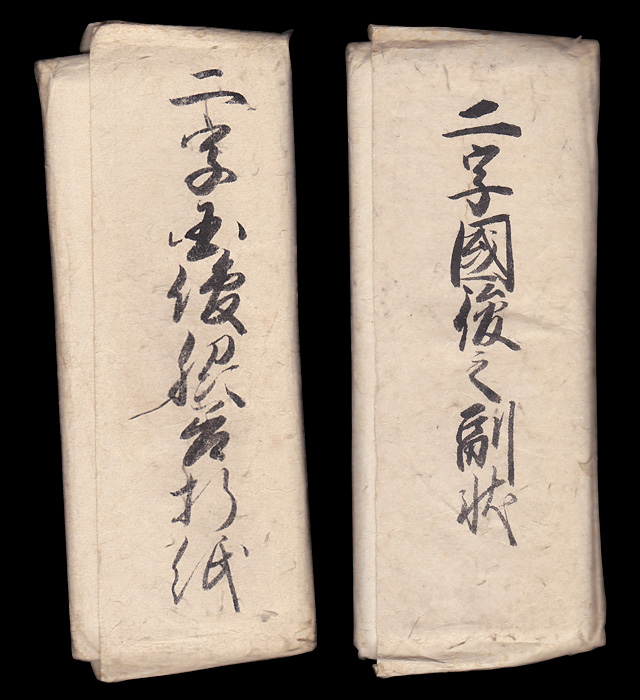 二字國俊之副状
二字国俊脇差折紙